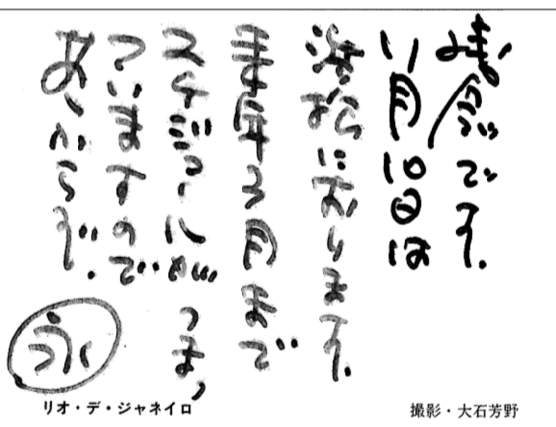 残念です。
11月10日は
浜松におります。
来年3月まで
スケジュールがつまっ
ていますので
あしからず。
永
リオ・デ・ジャネイロ
撮影・大石芳野